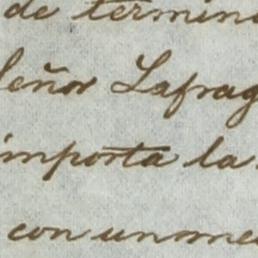 de termin
eñor Lafrag
importa la
con un me